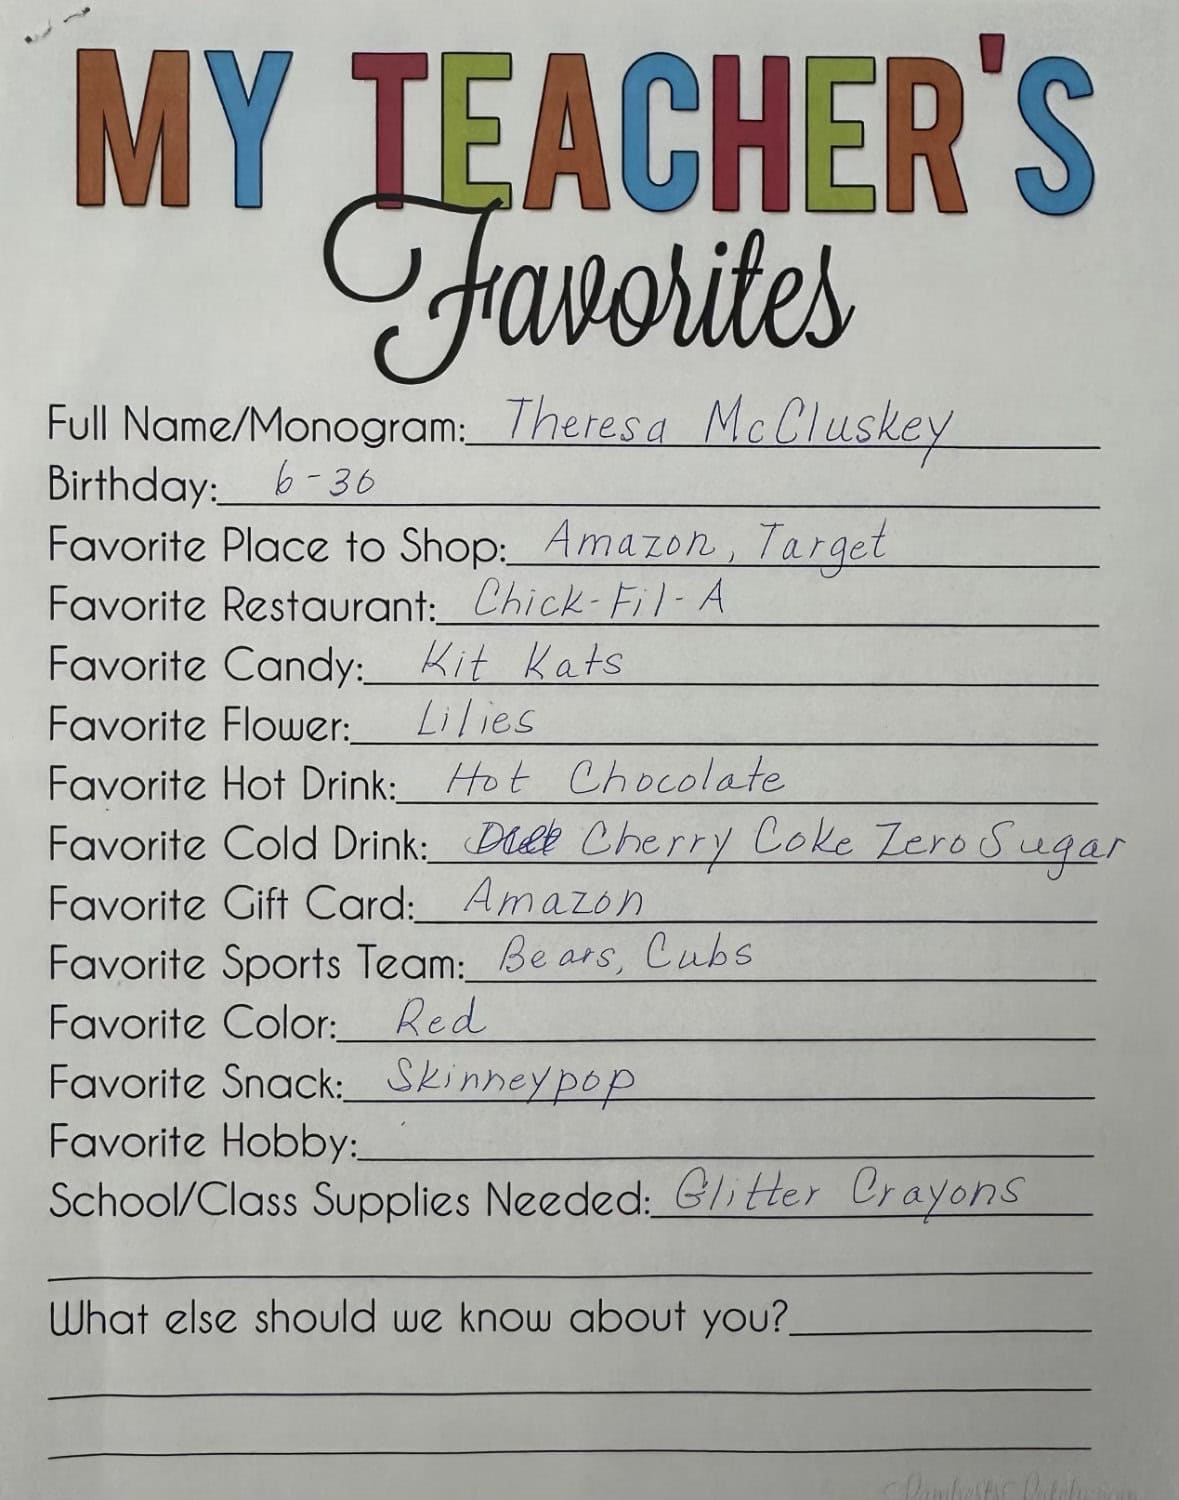 MY TEACHER'S
Favorites
Full Name/Monogram: Theresa McCluskey
Birthday: 6-30
Favorite Place to Shop: Amazon, Target
Favorite Restaurant: Chick-Fil-A
Favorite Candy: Kit Kats
Favorite Flower: Lilies
Favorite Hot Drink: Hot Chocolate
Favorite Cold Drink: Cherry Coke Zero Sugar
Favorite Gift Card: Amazon
Favorite Sports Team: Bears, Cubs
Favorite Color: Red
Favorite Snack: Skinneypop
Favorite Hobby:
School/Class Supplies Needed: Glitter Crayons
What else should we know about you?